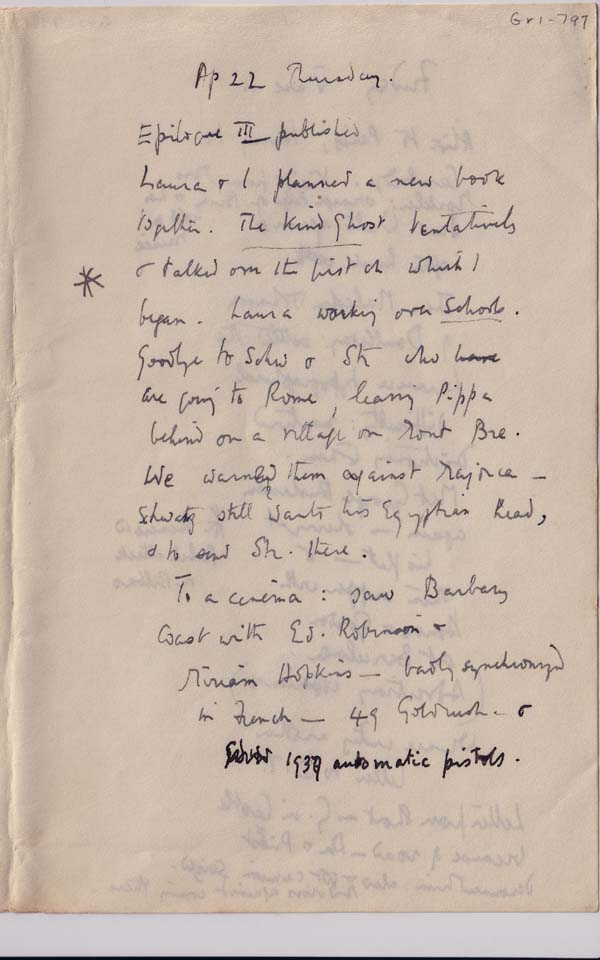 Gr1-797
Ap 22 Thursday.
Epilogue III published
Laura & I planned a new book
together. The Kind Ghost tentatively
* & talked over the first ch which I
began. Laura working over Schools.
Goodbye to Schw & Str who have
are going to Rome, leaving Pippa
behind on a village on Mont Bre.
We warned them against Majorca —
Schwarz still wants his Egyptian head,
& to send Str. there.
To a cinema: saw Barbary
Coast with Ed. Robinson &
Miriam Hopkins — badly synchronized
in French — 49 Goldrush — &
1937 automatic pistols.